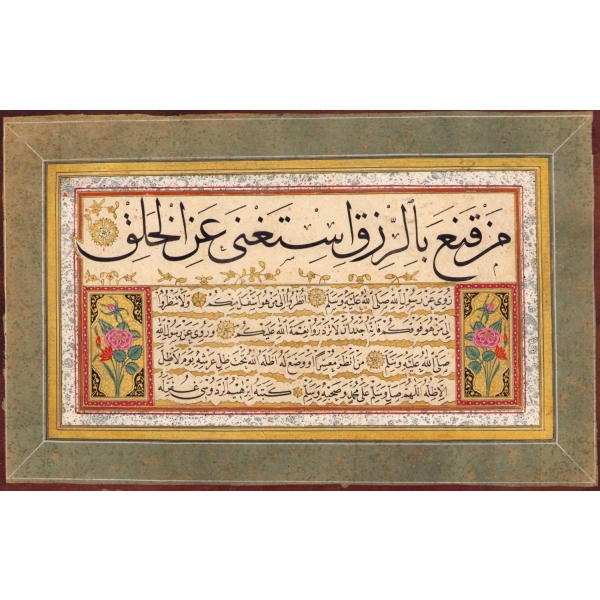 من قنع بالرزق استغنى عن الخلق
روى عن رسول الله صلى الله عليه وسلم انظروا الى من هو اسفل منكم ولا تنظروا
الى من هو فوقكم اجدر ان لا تزدروا نعمة الله عليكم وروى عن رسول الله
صلى الله عليه وسلم من انظر معسرا او وضع له اظله الله تحت ظل عرشه يوم لا ظل
الا ظله اللهم صل وسلم على محمد وصحبه وسلم كتبه ابراهيم